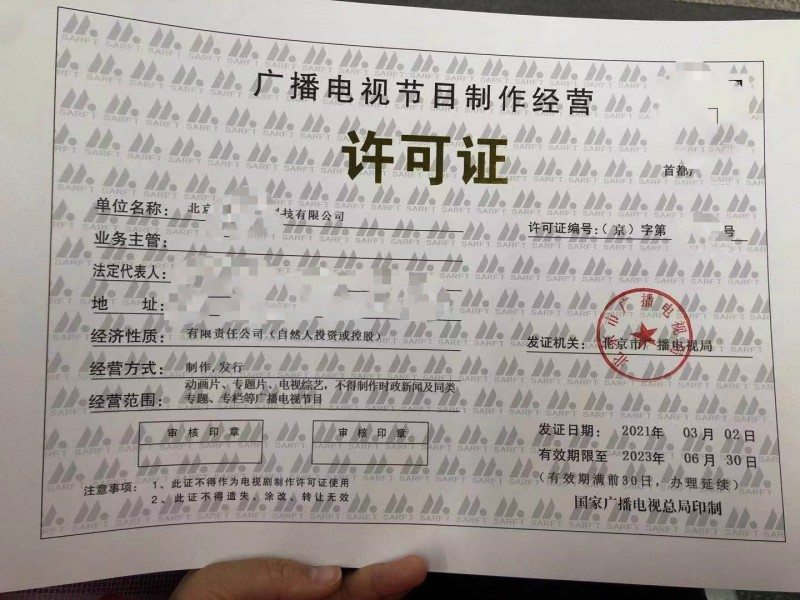 广播电视节目制作经营
许可证
首都
单位名称： 北京 技有限公司
许可证编号：（京）字第 号
业务主管：
法定代表人：
地 址：
经济性质： 有限责任公司（自然人投资或控股）
发证机关： 北京市广播电视局
北京市广播电视局
经营方式： 制作,发行
经营范围： 动画片、专题片、电视综艺，不得制作时政新闻及同类
专题、专栏等广播电视节目
审核印章
审核印章
发证日期： 2021年 03月02日
有效期限至 2023年 06月30日
（有效期满前30日，办理延续）
注意事项： 1、此证不得作为电视剧制作许可证使用
2、此证不得遗失、涂改、转让无效
国家广播电视总局印制
SARFT